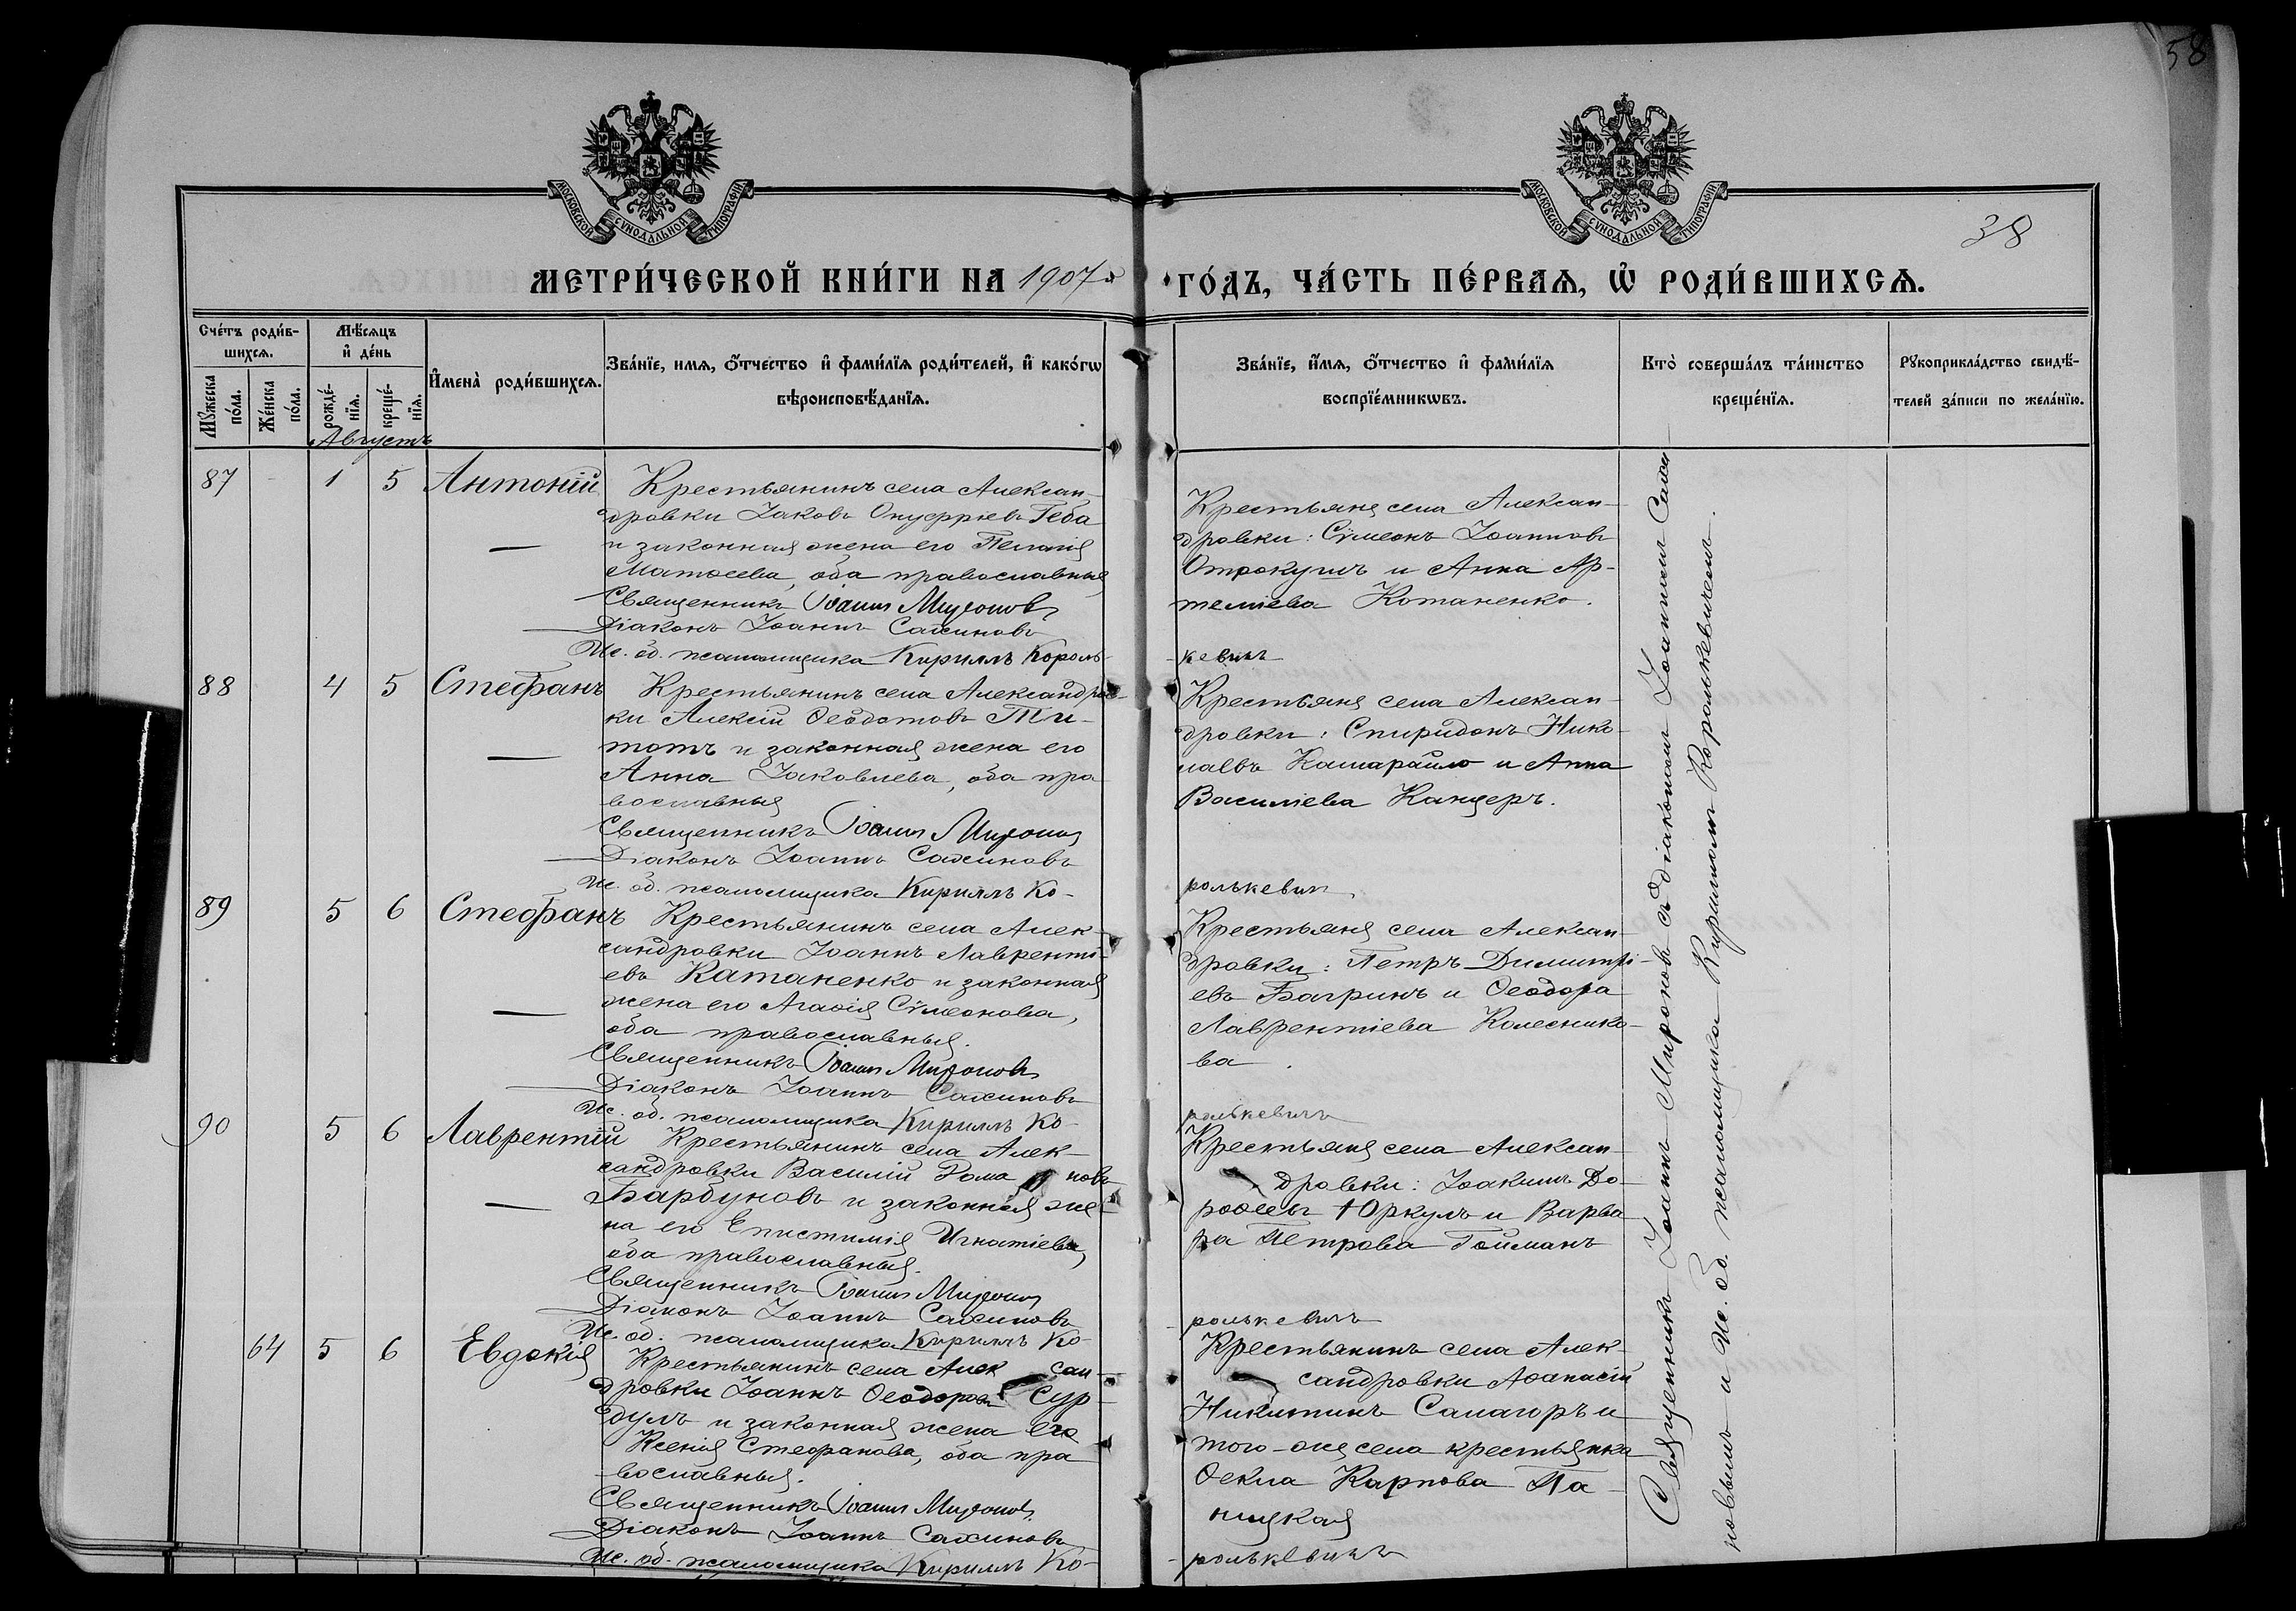 58
38
МОСКОВСКОЙ СѴНОДАЛЬНОЙ ТИПОГРАФІИ
МОСКОВСКОЙ СѴНОДАЛЬНОЙ ТИПОГРАФІИ
МЕТРИ́ЧЕСКОЙ КНИ́ГИ НА 1907й ГО́ДЪ, ЧА́СТЬ ПЕ́РВАѦ, Ѽ РОДИ́ВШИХСѦ.
Сче́тъ роди́в-
шихсѧ.
Мꙋ́жеска
по́ла.
Же́нска
по́ла.
Мѣ́сѧцъ
и҆ де́нь
рожде́-
нїѧ.
креще́-
нїѧ.
И҆мена̀ роди́вшихсѧ.
Зва́нїе, имѧ, ѻ҆́тчество и҆ фами́лїѧ роди́телей, и҆ како́гѡ
вѣроисповѣ́данїѧ.
Зва́нїе, и҆́мѧ, ѻ҆́тчество и҆ фами́лїѧ
воспрїе́мникѡвъ.
Кто̀ соверша́лъ та́инство
креще́нїѧ.
Рꙋкоприкла́дство свидѣ́-
телей за́писи по жела́нїю.
Августъ
87 1 5 Антоній
Крестьянинъ села Алексан-
дровки Іаковъ Онуфріевъ Геба
и законная жена его Пелагія
Матѳеева, оба православные
Священникъ Іоаннъ Мироновъ
Діаконъ Іоаннъ Сахиновъ
Ис. об. псаломщика Кириллъ Король-
Крестьяне села Алексан-
дровки: Сѵмеонъ Іоанновъ
Отрокушъ и Анна Ар-
теміева Котаненко.
кевичъ
88 4 5 Стефанъ
Крестьянинъ села Александров-
ки Алексій Ѳеодотовъ Ти-
тотъ и законная жена его
Анна Іаковлева, оба пра
вославные
Священникъ Іоаннъ Мироновъ
Діаконъ Іоаннъ Сахиновъ
Ис. об. псаломщика Кириллъ Ко-
Крестьяне села Алексан-
дровки: Спиридонъ Нико-
лаевъ Камарайло и Анна
Василіева Канцеръ.
ролькевич
89 5 6 Стефанъ
Крестьянинъ села Алек-
сандровки Іоаннъ Лавренті-
евъ Катаненко и законная
жена его Агаѳія Сѵмеонова,
оба православные.
Священникъ Іоаннъ Мироновъ
Діаконъ Іоаннъ Сахиновъ
Ис. об. псаломщика Кириллъ Ко-
Крестьяне села Алексан-
дровки: Петръ Димитрі-
евъ Багринъ и Ѳеодора
Лаврентіева Колеснико-
ва.
ролькевичъ
90 5 6 Лаврентій
Крестьянинъ села Алек-
сандровки Василій Рома новъ
Барбуновъ и законная же-
на его Епистимія Игнатіева,
оба православные.
Священникъ Іоаннъ Мироновъ
Діаконъ Іоаннъ Сахиновъ
Ис. об. псаломщика Кириллъ Ко-
Крестьяне села Алексан-
дровки: Іоакимъ До-
роѳеевъ Юркулъ и Варва
ра Петрова Гойманъ
ролькевичъ
64 5 6 Евдокія
Крестьянинъ села Алек сан-
дровки Іоаннъ Ѳеодоровъ Сур-
дулъ и законная жена его
Ксенія Стефанова, оба пра
вославные.
Священникъ Іоаннъ Мироновъ
Діаконъ Іоаннъ Сахиновъ
Ис. об. псаломщика Кириллъ Ко-
Крестьянинъ села Алек-
сандровки Аѳанасій
Никитинъ Саламоръ и
того-же села крестьянка
Ѳекла Карпова Па-
ницкая
ролькевичъ
Священникъ Іоаннъ Мироновъ съ діакономъ Іоанномъ Сахи
новымъ и Ис. об. псаломщика Кирилломъ Королькевичемъ.